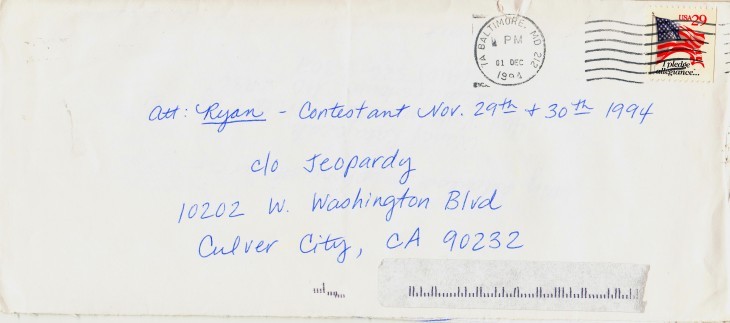 1A BALTIMORE, MD 212
PM
01 DEC
1994
USA 29
I pledge
allegiance...
Att: Ryan - Contestant Nov. 29th + 30th 1994
c/o Jeopardy
10202 W. Washington Blvd
Culver City, CA 90232